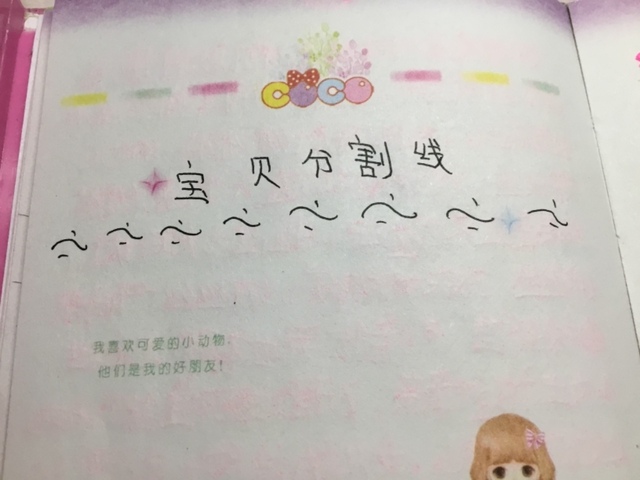 COCO
宝贝分割线
我喜欢可爱的小动物,
他们是我的好朋友!